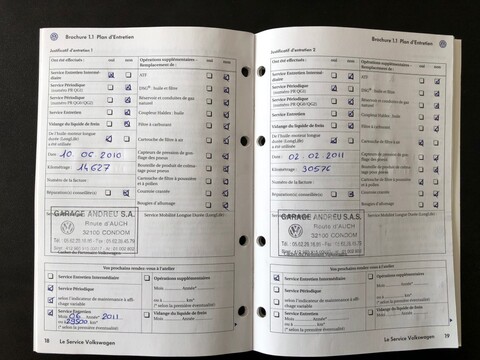 Brochure 1.1 Plan d'Entretien
Justificatif d'entretien 1
Ont été effectués : oui non
Opérations supplémentaires – Remplacement de : oui non
Service Entretien Intermédiaire
ATF
Service Périodique
DSG® : huile et filtre
Service Périodique
Réservoir et conduites de gaz naturel
Service Entretien
Coupleur Haldex : huile
Vidange du liquide de frein
Filtre à carburant
De l'huile moteur longue durée (LongLife) a été utilisée
Cartouche de filtre à air
Date : 10 06 2010
Capteurs de pression de gonflage des pneus
Kilométrage : 14627
Bouteille de produit de crevaison pour pneus
Numéro de la facture :
Cartouche de filtre à poussière et à pollen
Courroie crantée
Réparation(s) conseillée(s)
Bougies d'allumage
GARAGE ANDREU S.A.S.
Route d'AUCH
32100 CONDOM
Cachet du Partenaire Volkswagen
Service Mobilité Longue Durée (LongLife)
Vos prochains rendez-vous à l'atelier
Service Entretien Intermédiaire
Opérations supplémentaires
Service Périodique
Mois Année
selon l'indicateur de maintenance à affichage variable
ou à km*
(* selon la première éventualité)
Service Entretien
Mois 06 Année 2011
ou à 29500 km*
(* selon la première éventualité)
Vidange du liquide de frein
Mois Année
18 Le Service Volkswagen
Brochure 1.1 Plan d'Entretien
Justificatif d'entretien 2
Ont été effectués : oui non
Opérations supplémentaires – Remplacement de : oui non
Service Entretien Intermédiaire
ATF
Service Périodique
DSG® : huile et filtre
Service Périodique
Réservoir et conduites de gaz naturel
Service Entretien
Coupleur Haldex : huile
Vidange du liquide de frein
Filtre à carburant
De l'huile moteur longue durée (LongLife) a été utilisée
Cartouche de filtre à air
Date : 02. 02. 2011
Capteurs de pression de gonflage des pneus
Kilométrage : 30576
Numéro de la facture :
Cartouche de filtre à poussière et à pollen
Courroie crantée
Réparation(s) conseillée(s)
Bougies d'allumage
GARAGE ANDREU S.A.S.
Route d'AUCH
32100 CONDOM
Cachet du Partenaire Volkswagen
Service Mobilité Longue Durée (LongLife)
Vos prochains rendez-vous à l'atelier
Service Entretien Intermédiaire
Opérations supplémentaires
Service Périodique
Mois Année
selon l'indicateur de maintenance à affichage variable
ou à km*
(* selon la première éventualité)
Service Entretien
Mois Année
ou à km*
(* selon la première éventualité)
Vidange du liquide de frein
Mois Année
Le Service Volkswagen 19